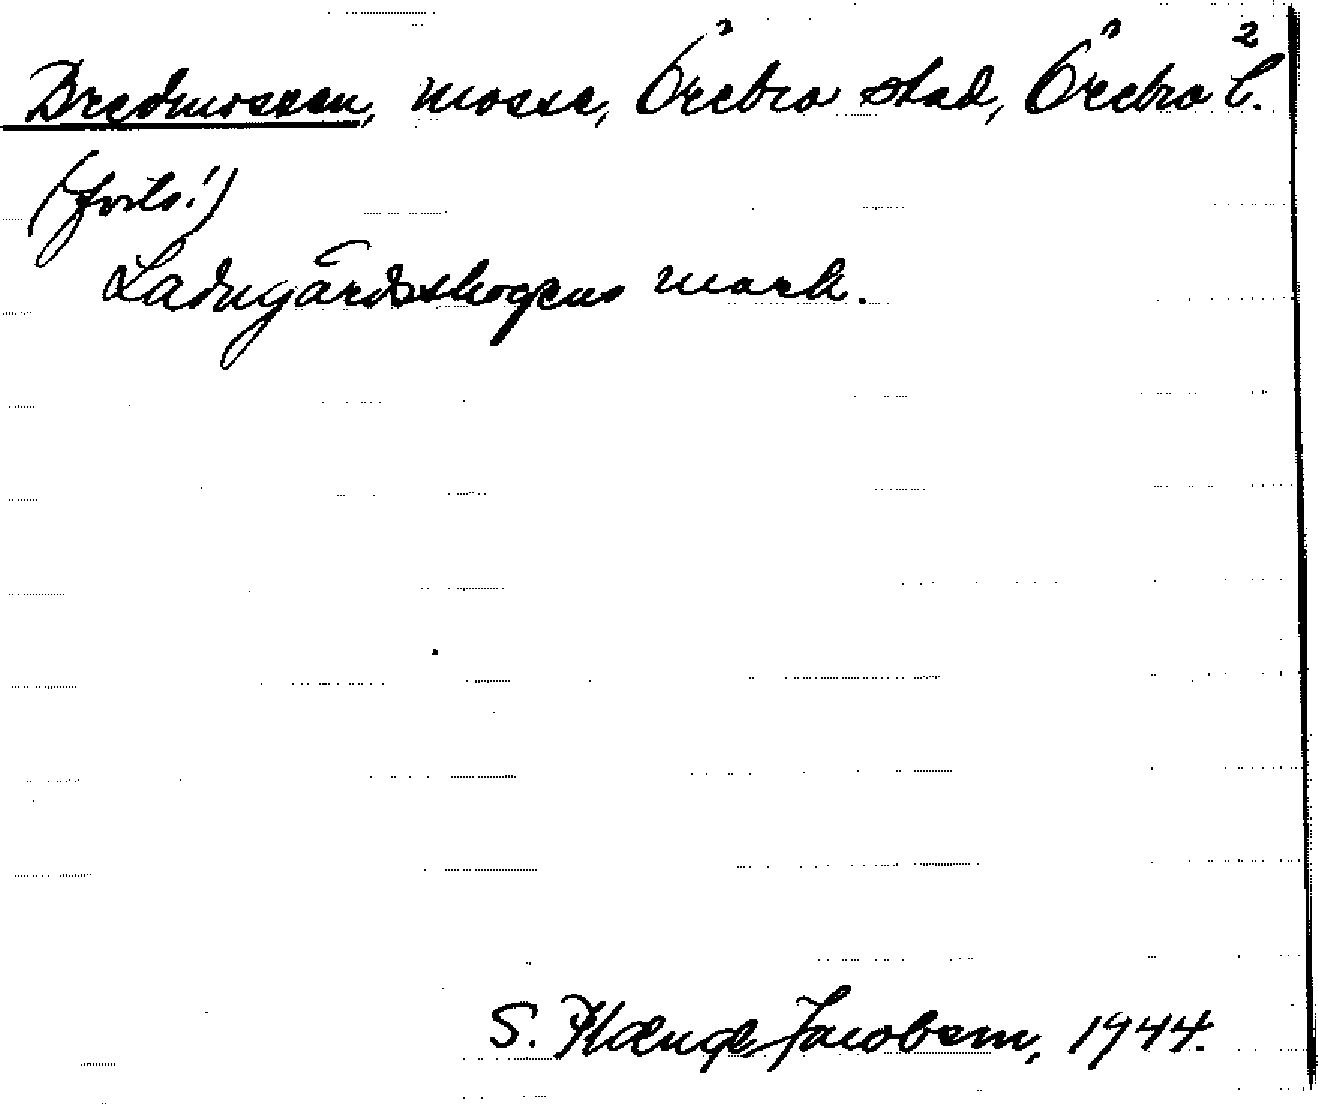 2
Bredmossen, mosse, Örebro stad, Örebro l.
(forts.!)
Ladugårdsskogens mark.
S. Plænge Jacobson, 1944.